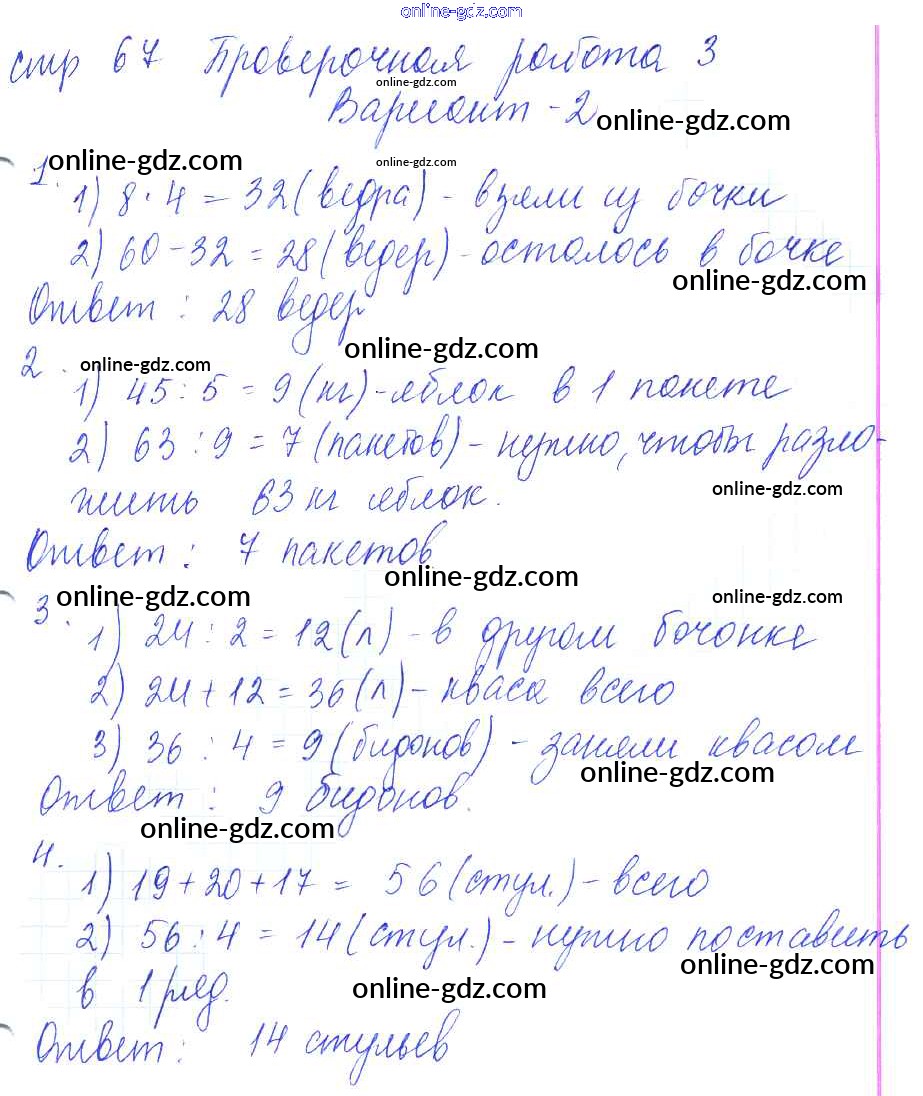 online-gdz.com
стр 67 Проверочная работа 3
online-gdz.com
Вариант - 2 online-gdz.com
online-gdz.com online-gdz.com
1. 1) 8 · 4 = 32 (ведра) - взяли из бочки
2) 60 - 32 = 28 (ведер) - осталось в бочке
online-gdz.com
Ответ : 28 ведер
online-gdz.com
2. online-gdz.com
1) 45 : 5 = 9 (кг) - яблок в 1 пакете
2) 63 : 9 = 7 (пакетов) - нужно, чтобы разло-
online-gdz.com
жить 63 кг яблок.
Ответ : 7 пакетов
online-gdz.com
3. online-gdz.com online-gdz.com
1) 24 : 2 = 12 (л) - в другом бочонке
2) 24 + 12 = 36 (л) - кваса всего
3) 36 : 4 = 9 (бидонов) - заняли квасом
online-gdz.com
Ответ : 9 бидонов.
online-gdz.com
4.
1) 19 + 20 + 17 = 56 (стул.) - всего
2) 56 : 4 = 14 (стул.) - нужно поставить
online-gdz.com
в 1 ряд. online-gdz.com
Ответ : 14 стульев